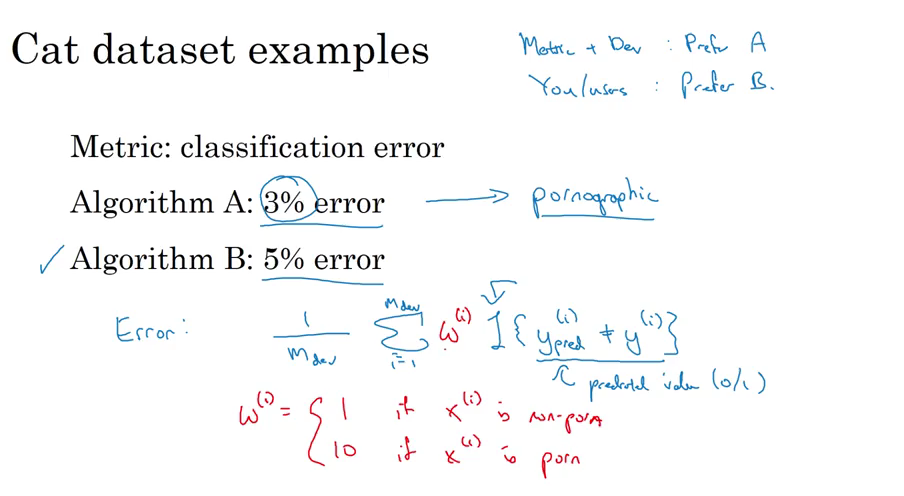 Cat dataset examples
Metric + Dev : Prefer A
You/users : Prefer B.
Metric: classification error
Algorithm A: 3% error → pornographic
✓ Algorithm B: 5% error
Error: 1/m_dev ∑_{i=1}^{m_dev} w^{(i)} I{ y_pred^{(i)} ≠ y^{(i)} }
predicted value (0/1)
w^{(i)} = { 1 if x^{(i)} is non-porn
10 if x^{(i)} is porn